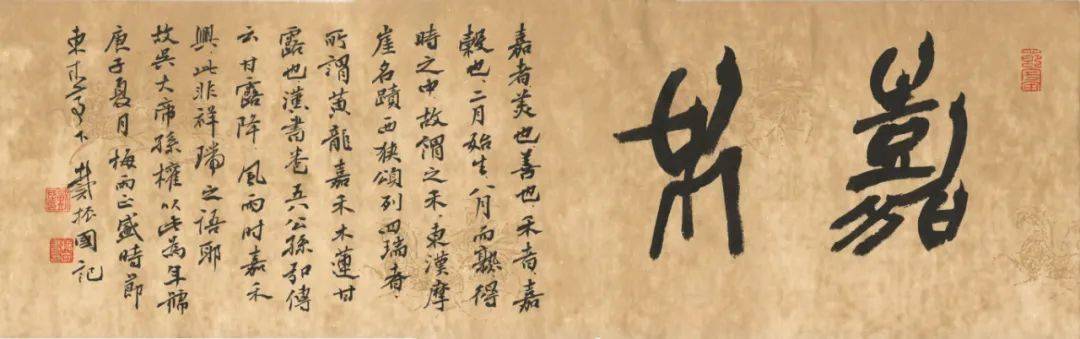 嘉禾
嘉者美也善也禾者嘉
穀也二月始生八月而熟得
時之中故謂之禾東漢摩
崖名蹟西狹頌列四瑞者
所謂黃龍嘉禾木連甘
露也漢書卷五八公孫弘傳
云甘露降風雨時嘉禾
興此非祥瑞之語耶
故吳大帝孫權以此為年號
庚子夏月梅雨正盛時節
東下戴振國記